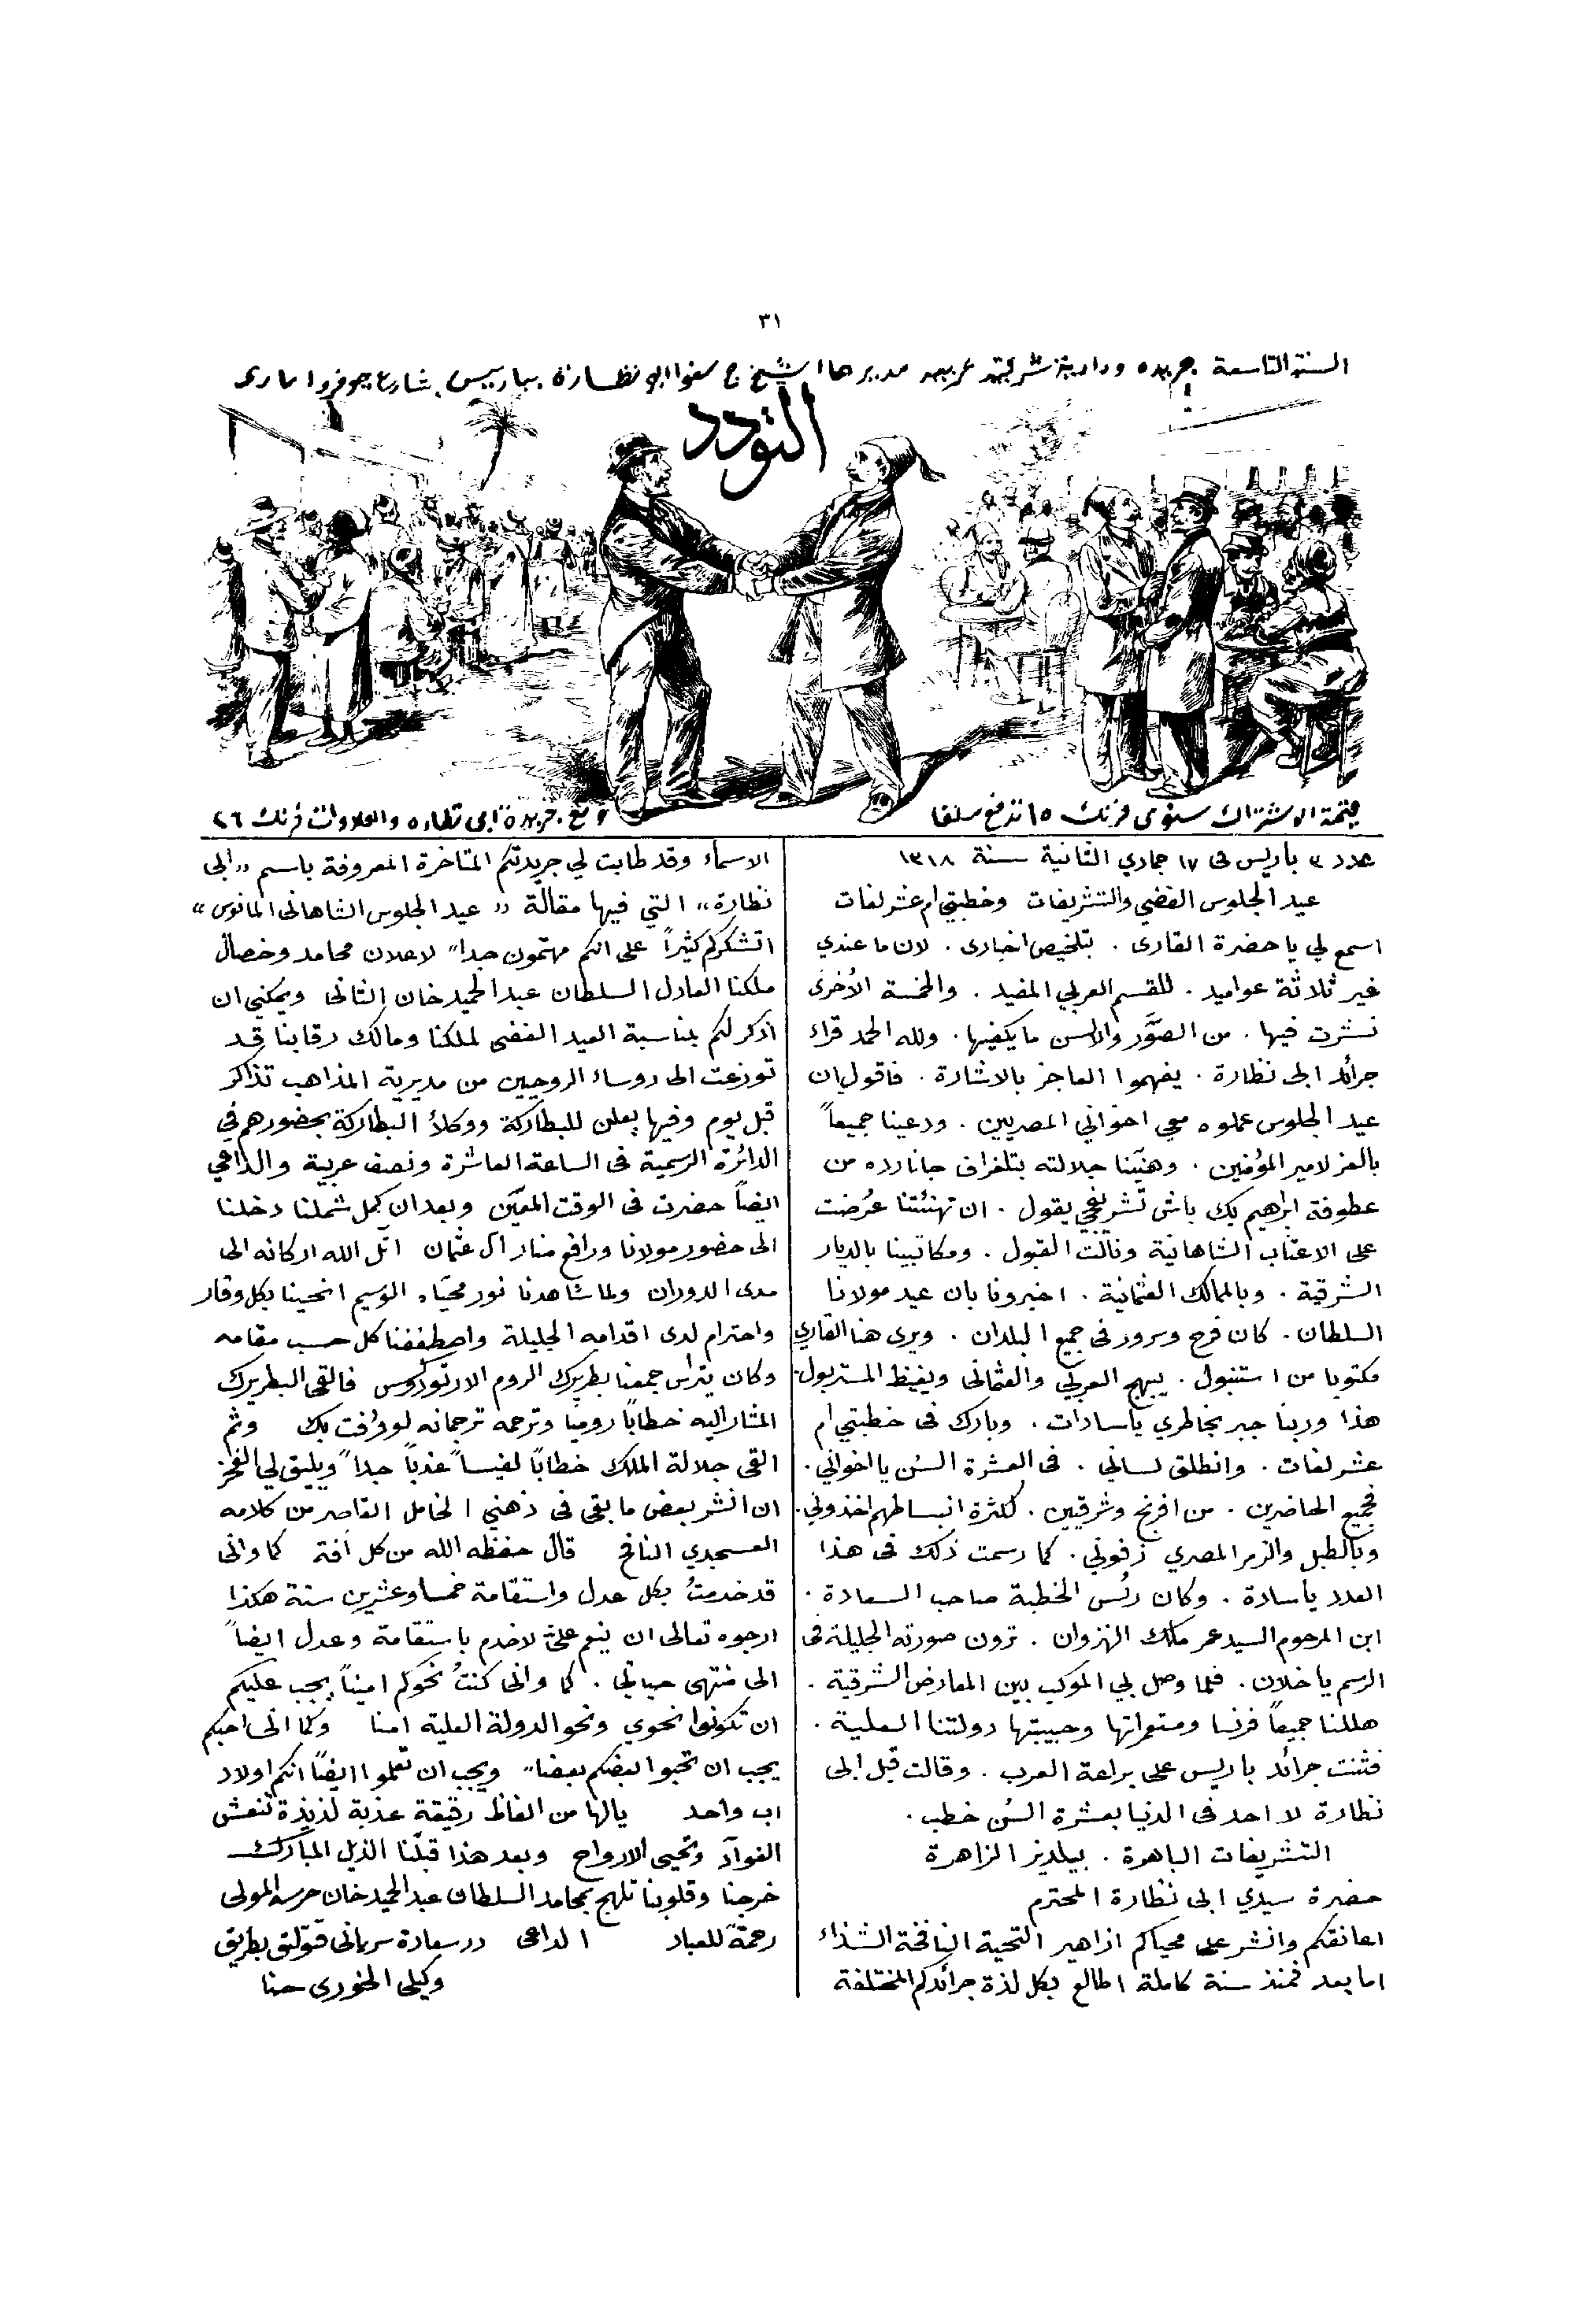 ٣١
السنة التاسعة جريدة ودادية شرقية عربية مديرها الشيخ ج سنوا ابو نظارة بباريس شارع جوفروا ماري
التودد
قيمة الاشتراك سنوى فرنك ١٥ تدفع سلفا
و مع جريدة ابى نظاره والعلاوات فرنك ٢٦
عدد ٣ باريس فى ١٧ جمادي الثانية سنة ١٣١٨
عيد الجلوس الفضي والتشريفات وخطبتي ام عشر لغات
اسمع لي يا حضرة القارى . بتلخيص اخبارى . لان ما عندي
غير ثلاثة عواميد . للقسم العربي المفيد . والخمسة الأخرى
نشرت فيها . من الصوَر والالسن ما يكفيها . ولله الحمد قراء
جرائد ابى نظارة . يفهموا العاجز بالاشارة . فاقول ان
عيد الجلوس عملوه معي اخواني المصريين . ودعينا جميعاً
بالعز لامير المؤمنين . وهنّينا جلالته بتلغراف جانا رده من
عطوفة ابراهيم بك باش تشريفجي يقول . ان تهنئتنا عُرضت
على الاعتاب الشاهانية ونالت القبول . ومكاتبينا بالديار
الشرقية . وبالممالك العثمانية . اخبرونا بان عيد مولانا
السلطان . كان فرح وسرور فى جميع البلدان . ويرى هنا القاري
مكتوبا من استنبول . يبهج العربي والعثمانى ويغيظ المستربول .
هذا وربنا جبر بخاطري ياسادات . وبارك فى خطبتي ام
عشر لغات . وانطلق لسانى . فى العشرة السُن يا اخواني .
فجميع الحاضرين . من افرنج وشرقيين . لكثرة انبساطهم اخذوني .
وبالطبل والزمر المصري زفوني . كما رسمت ذلك فى هذا
العدد ياسادة . وكان رئس الخطبة صاحب السعادة .
ابن المرحوم السيد عمر ملك النزوان . ترون صورته الجليلة فى
الرسم يا خلان . فلما وصل بي الموكب بين المعارض الشرقية .
هللنا جميعاً فرنسا ومستعمراتها وحبيبتها دولتنا العلية .
فثنت جرائد باريس على براعة العرب . وقالت قبل ابى
نظارة لا احد فى الدنيا بعشرة السُن خطب .
التشريفات الباهرة . بيلديز الزاهرة
حضرة سيدي ابى نظارة المحترم
اعانقكم وانشر على محياكم ازاهير التحية النافخة الشذاء
اما بعد فمنذ سنة كاملة اطالع بكل لذة جرائدكم المختلفة
الاسماء وقد طابت لي جريدتكم المتاخرة المعروفة باسم « ابى
نظارة » التي فيها مقالة « عيد الجلوس الشاهانى المانوس »
اتشكركم كثيراً على انكم مهتمون جداً لاعلان محامد وخصال
ملكنا العادل السلطان عبد الحميد خان الثانى ويمكنني ان
اذكر لكم بمناسبة العيد الفضى لملكنا ومالك رقابنا قد
توزعت الى روساء الروحيين من مديرية المذاهب تذاكر
قبل يوم وفيها يعلن للبطاركة ووكلأ البطاركة بحضورهم في
الدائرة الرسمية فى الساعة العاشرة ونصف عربية والداعي
ايضاً حضرت فى الوقت المعيّن وبعد ان كمل شملنا دخلنا
الى حضور مولانا ورافع منار آل عثمان اثّل الله اركانه الى
مدى الدوران ولما شاهدنا نور محيّاه الوسيم انحنينا بكل وقار
واحترام لدى اقدامه الجليلة واصطففنا كل حسب مقامه
وكان يتراس جمعنا بطريرك الروم الارثوذكوس فالقى البطريرك
المشار اليه خطاباً رومياً وترجمه ترجمانه لوفرافت بك وثم
القى جلالة الملك خطاباً نفيساً عذباً جداً ويليق لي الفخر
ان انشر بعض ما بقى فى ذهني الخامل القاصر من كلامه
العسجدي النافح قال حفظه الله من كل افة كما وانى
قد خدمتُ بكل عدل واستقامة خمسا وعشرين سنة هكذا
ارجوه تعالى ان ينعم علىّ لاخدم باستقامة وعدل ايضاً
الى منتهى حياتي . كما وانى كنتُ نحوكم اميناً يجب عليكم
ان تكونوا نحوي ونحو الدولة العلية امنا وكما انى احبكم
يجب ان تحبوا بعضكم بعضاً ويجب ان تعلموا ايضاً انكم اولاد
اب واحد يالها من الفاظ رقيقة عذبة لذيذة تنعش
الفوآد وتحيى الارواح وبعد هذا قبلّنا الذيل المبارك
خرجنا وقلوبنا تلهج بمحامد السلطان عبد الحميد خان حرسه المولى
رحمةً للعباد الداعى در سعادة سريانى قتولق بطريق
وكيلى الخورى حنا